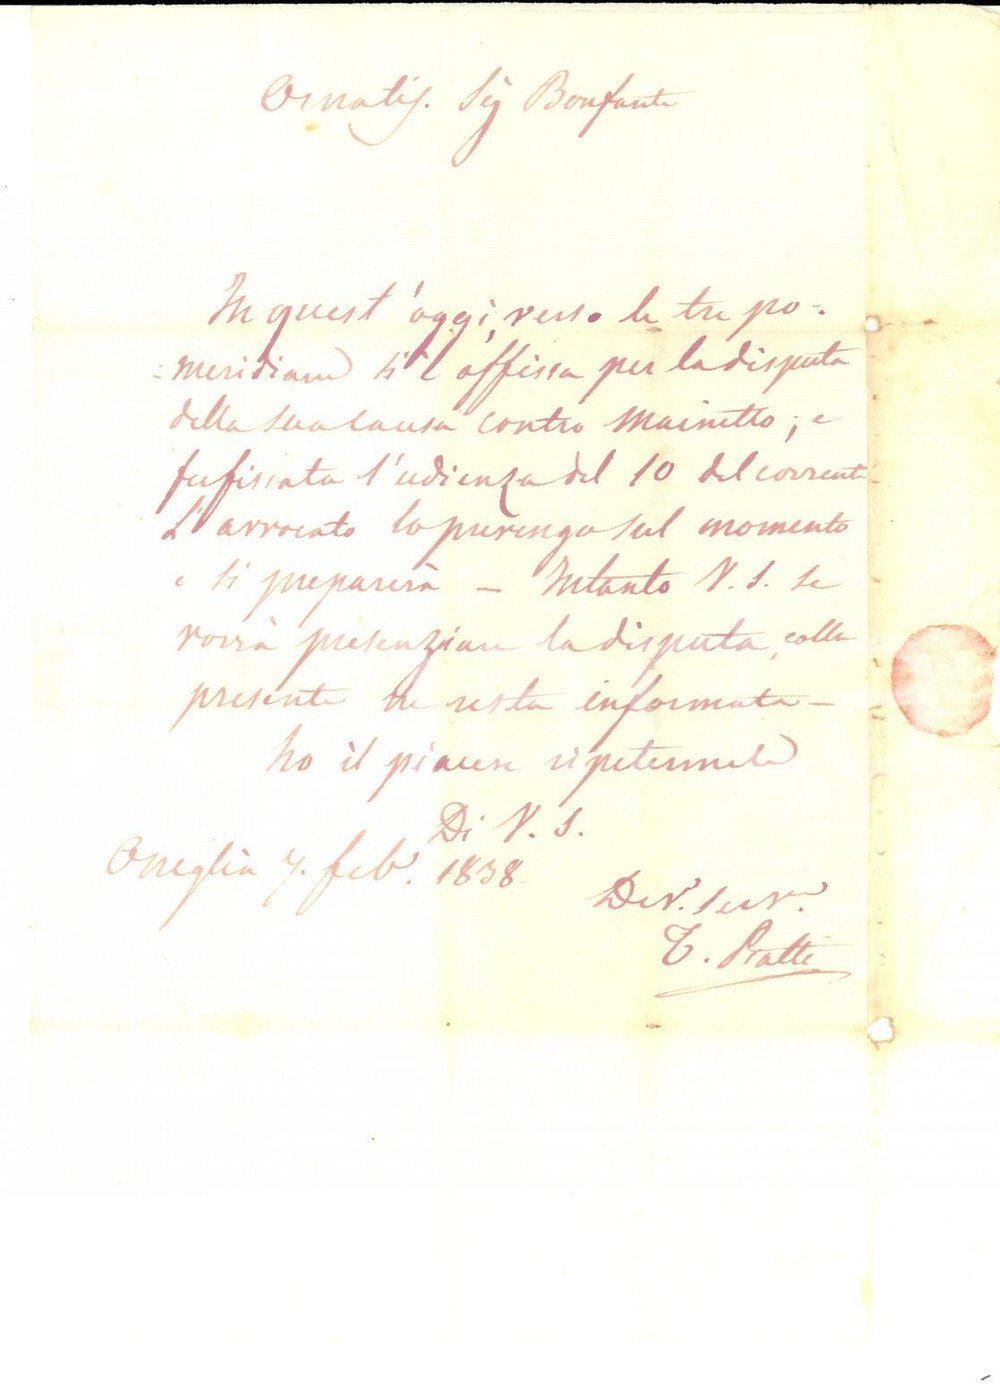 Ornatis. Sig Bonfante
In quest'oggi, verso le tre po=
=meridiane si è affissa per la disputa
della sua causa contro Mainetto; e
fu fissata l'udienza del 10 del corrente
L'avvocato lo prevengo sul momento
e si preparerà — Intanto V. S. se
vorrà presenziare la disputa, colla
presente ne resta informata —
ho il piacere ripetermele
Di V. S.
Oneglia 7. feb. 1838
Dev. Serv.